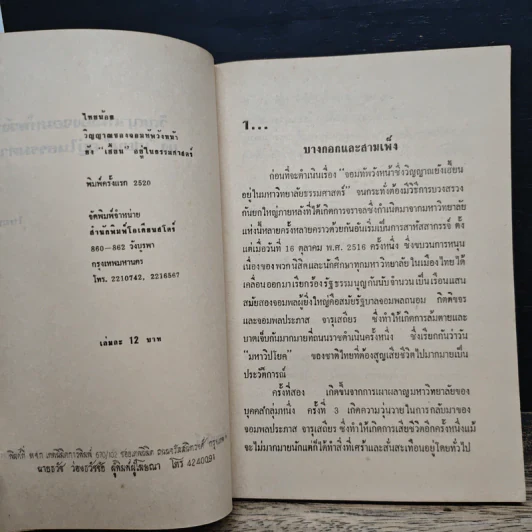 ไทยน้อย
วิญญาณของจอมทัพวังหน้า
ยัง "เฮี้ยน" อยู่ในธรรมศาสตร์
พิมพ์ครั้งแรก 2520
จัดพิมพ์จำหน่าย
สำนักพิมพ์โอเดียนสโตร์
860-862 วังบูรพา
กรุงเทพมหานคร
โทร. 2210742, 2216567
เล่มละ 12 บาท
พิมพ์ที่ หจก.
นายธวัช ผู้พิมพ์ผู้โฆษณา โทร 4240091
1...
บางกอกและสามเพ็ง
ก่อนที่จะดำเนินเรื่อง "จอมทัพวังหน้าซึ่งวิญญาณยังเฮี้ยน
อยู่ในมหาวิทยาลัยธรรมศาสตร์" จนกระทั่งต้องมีวิธีการบวงสรวง
กันยกใหญ่ภายหลังที่ได้เกิดการจราจลซึ่งกำเนิดมาจากมหาวิทยาลัย
แห่งนี้หลายครั้งหลายคราวด้วยกันอันเริ่มเป็นการโหดสาหัสสากรรจ์ ตั้ง
แต่เมื่อวันที่ 16 ตุลาคม พ.ศ. 2516 ครั้งหนึ่ง ซึ่งขบวนการหนุน
เนื่องของพวกนิสิตและนักศึกษาทุกมหาวิทยาลัยในเมืองไทย ได้
เคลื่อนออกมาเรียกร้องรัฐธรรมนูญกันนับจำนวนเป็นเรือนแสน
สมัยสองจอมพลผู้ยิ่งใหญ่คือสมัยรัฐบาลจอมพลถนอม กิตติขจร
และจอมพลประภาส จารุเสถียร ซึ่งทำให้เกิดการล้มตายและ
บาดเจ็บกันมากมายที่ถนนราชดำเนินครั้งหนึ่ง ซึ่งเรียกกันว่าวัน
"มหาวิปโยค" ของชาติไทยที่ต้องสูญเสียชีวิตไปมากมายเป็น
ประวัติการณ์
ครั้งที่สอง เกิดขึ้นจากการเผาผลาญมหาวิทยาลัยของ
บุคคลกลุ่มหนึ่ง ครั้งที่ 3 เกิดความวุ่นวายในการกลับมาของ
จอมพลประภาส จารุเสถียร ซึ่งทำให้เกิดการเสียชีวิตอีกครั้งหนึ่งแม้
จะไม่มากมายนักแต่ก็ได้ทำสิ่งที่เศร้าและสั่นสะเทือนอยู่โดยทั่วไป